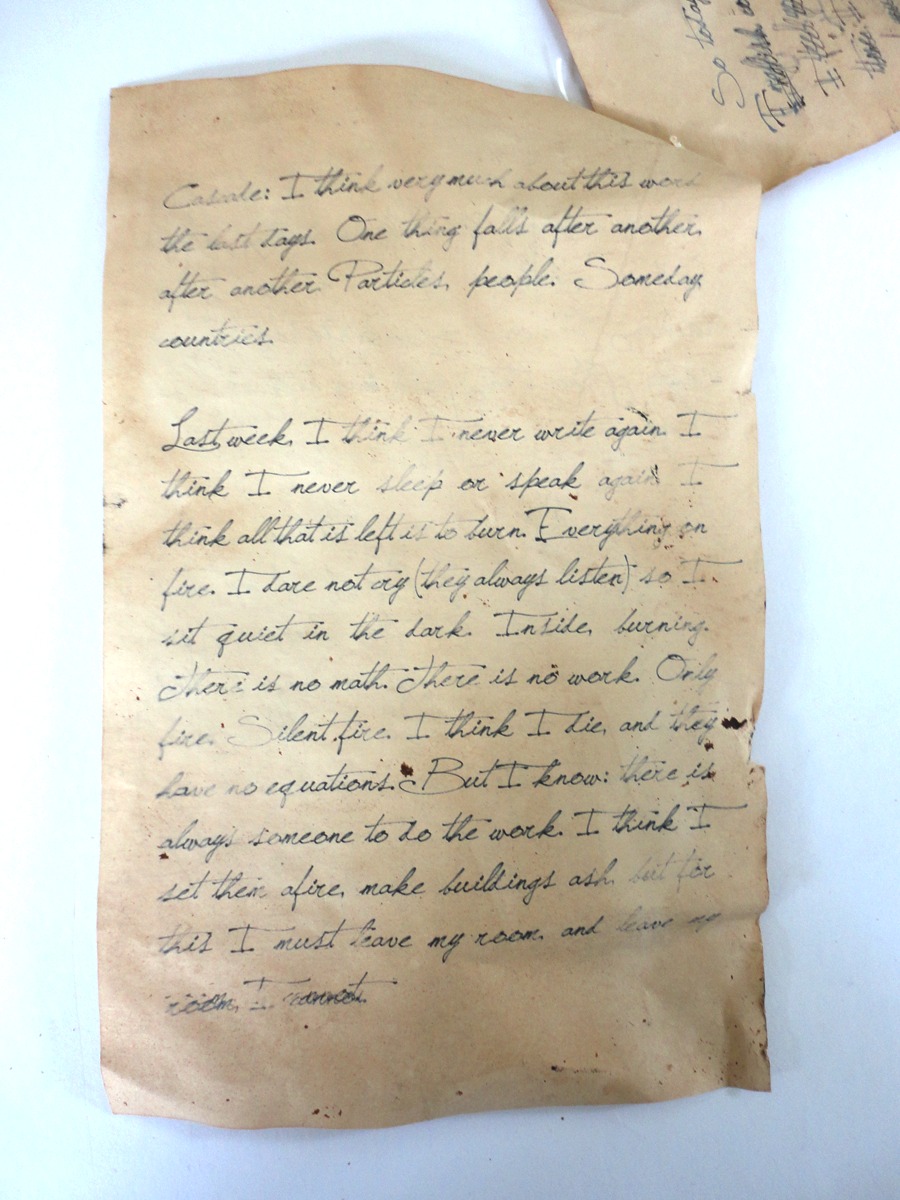 So today
English is
I feel
these. I
Cascade: I think very much about this word
the last days. One thing falls after another,
after another. Particles, people. Someday,
countries.
Last week, I think I never write again. I
think I never sleep or speak again. I
think all that is left is to burn. Everything on
fire. I dare not cry (they always listen) so I
sit quiet in the dark. Inside, burning.
There is no math. There is no work. Only
fire. Silent fire. I think I die, and they
have no equations. But I know: there is
always someone to do the work. I think I
set them afire, make buildings ash, but for
this I must leave my room, and leave my
room, I cannot.